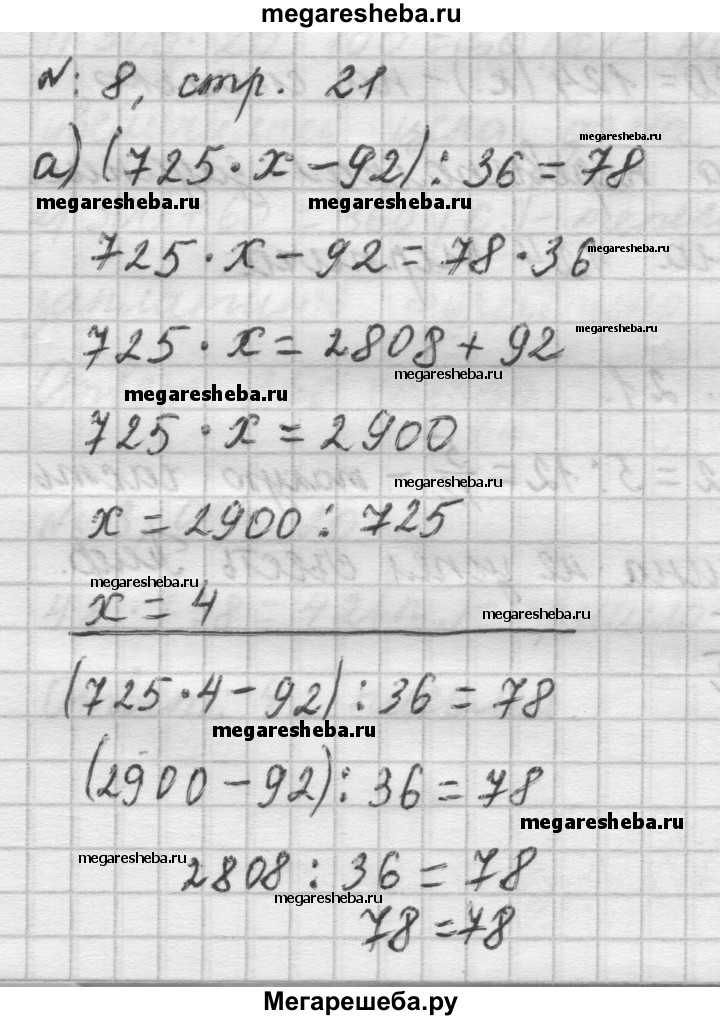 megaresheba.ru
№: 8, стр. 21
megaresheba.ru
а) (725 · x − 92) : 36 = 78
megaresheba.ru megaresheba.ru
725 · x − 92 = 78 · 36 megaresheba.ru
725 · x = 2808 + 92 megaresheba.ru
megaresheba.ru
megaresheba.ru
725 · x = 2900
megaresheba.ru
x = 2900 : 725
megaresheba.ru
x = 4 megaresheba.ru
(725 · 4 − 92) : 36 = 78
megaresheba.ru
(2900 − 92) : 36 = 78
megaresheba.ru
megaresheba.ru 2808 : 36 = 78
megaresheba.ru
78 = 78
Мегарешеба.ру